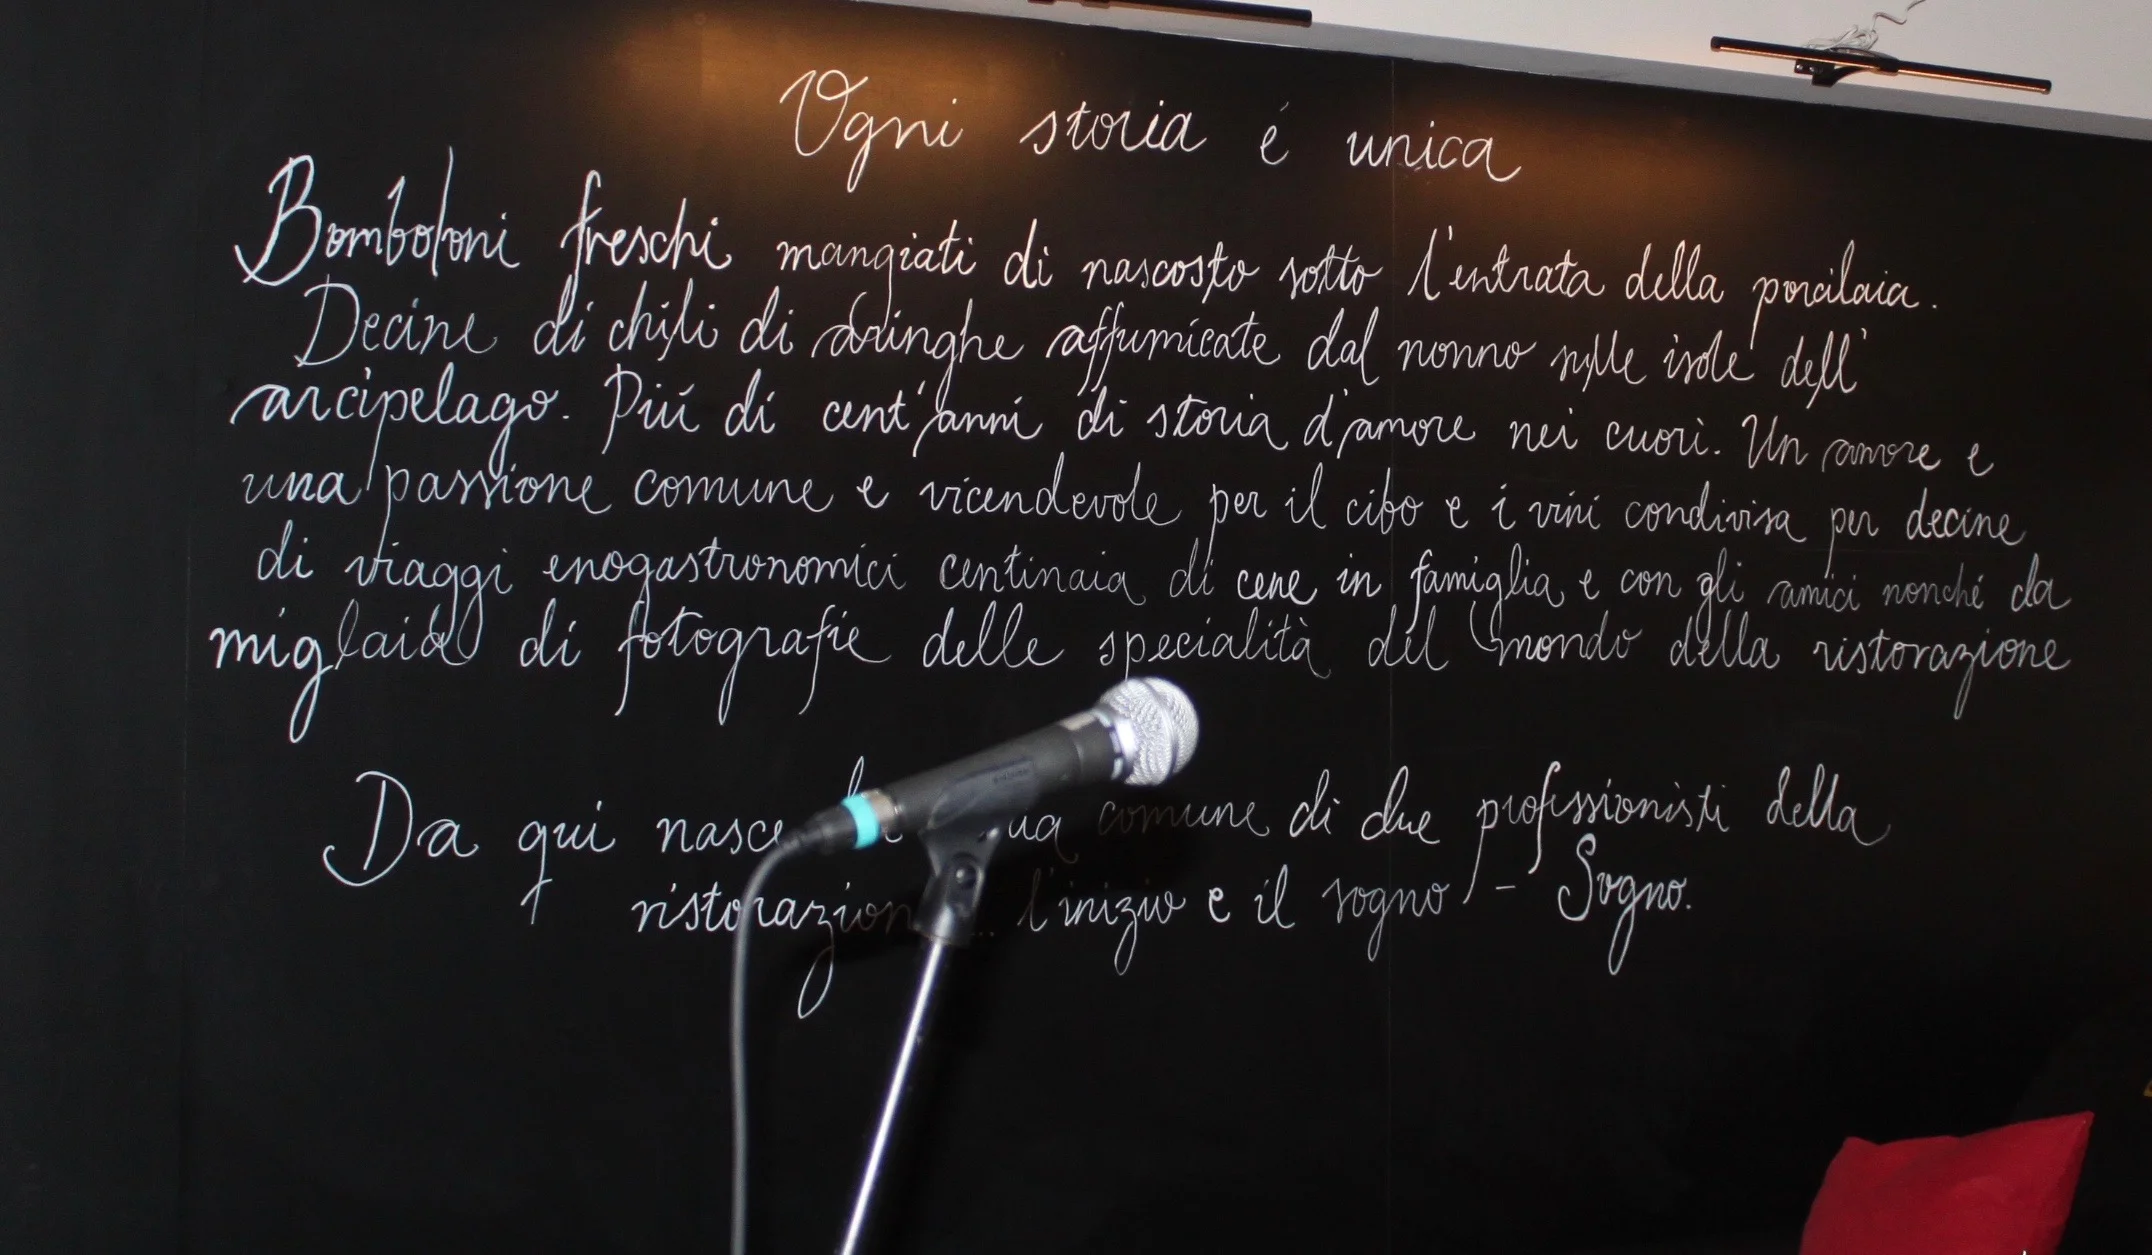 Ogni storia é unica
Bomboloni freschi mangiati di nascosto sotto l'entrata della porcilaia.
Decine di chili di aringhe affumicate dal nonno sulle isole dell'
arcipelago. Piú di cent'anni di storia d'amore nei cuori. Un amore e
una passione comune e vicendevole per il cibo e i vini condivisa per decine
di viaggi enogastronomici centinaia di cene in famiglia e con gli amici nonché da
miglaia di fotografie delle specialità del mondo della ristorazione
Da qui nasce comune di due professionisti della
ristorazion ... l'inizio e il sogno - Sogno.